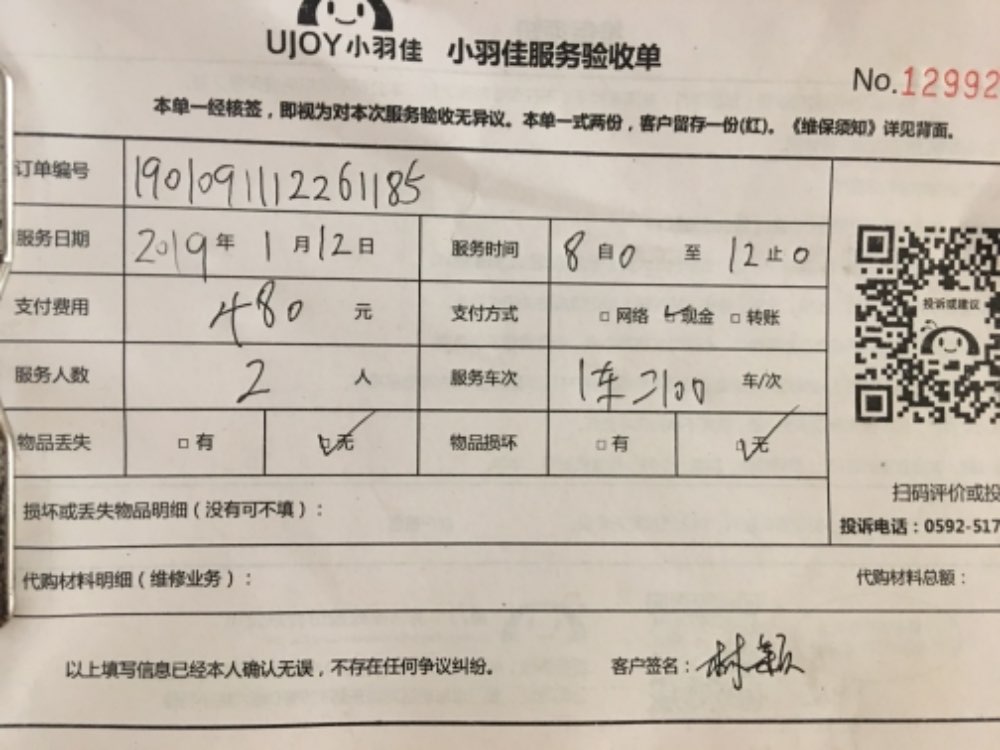 UJOY小羽佳 小羽佳服务验收单
No.12992
本单一经核签，即视为对本次服务验收无异议。本单一式两份，客户留存一份(红)。《维保须知》详见背面。
订单编号 1901091112261185
服务日期 2019年1月12日 服务时间 8自0至12止0
投诉或建议
支付费用 480元 支付方式 □网络 ☑现金 □转账
服务人数 2人 服务车次 1车 车/次
物品丢失 □有 ☑无 物品损坏 □有 ☑无
扫码评价或投
损坏或丢失物品明细（没有可不填）：
投诉电话：0592-517
代购材料明细（维修业务）： 代购材料总额：
以上填写信息已经本人确认无误，不存在任何争议纠纷。 客户签名：林颖